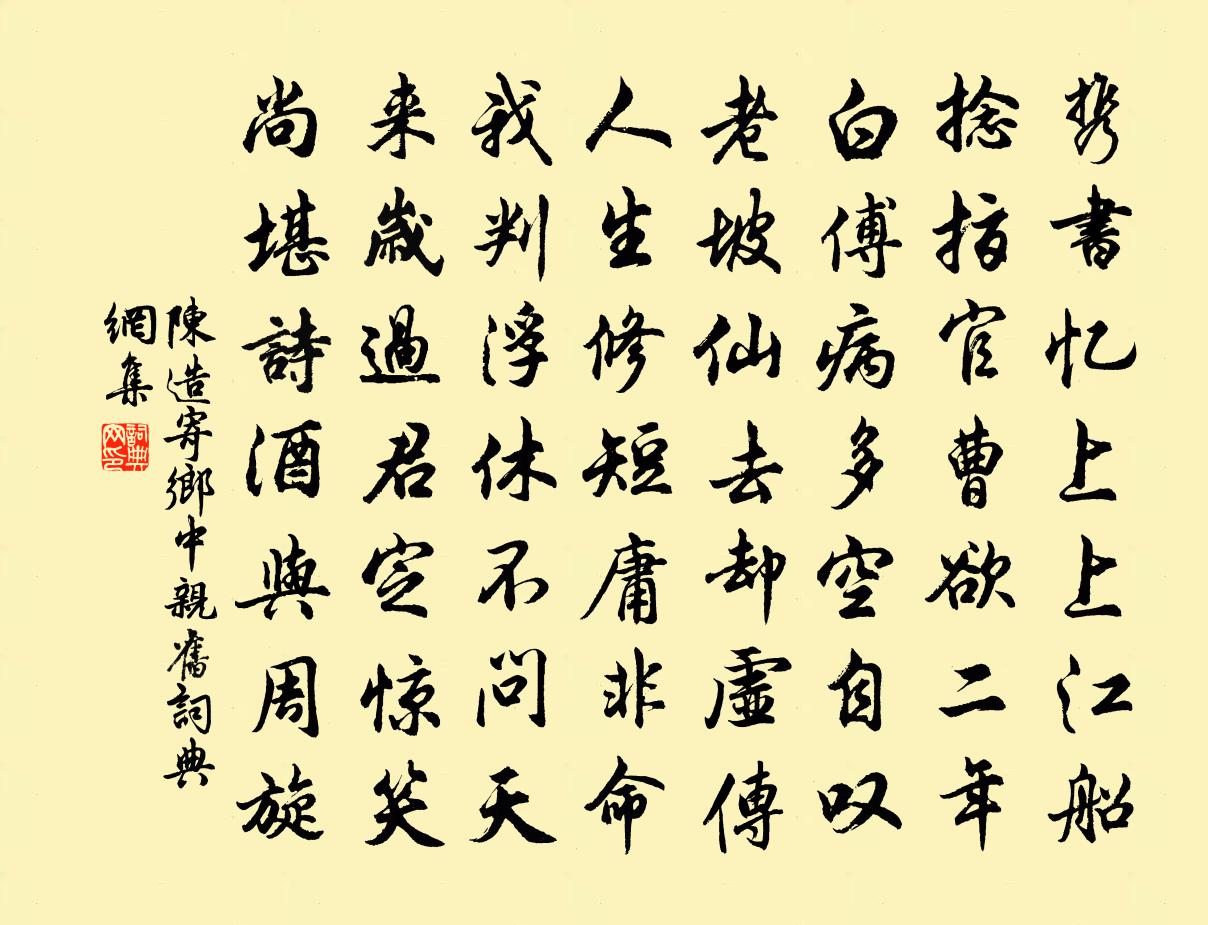 携書忆上上江船
捻指官曹欲二年
白傅病多空自叹
老坡仙去却虚傳
人生修短庸非命
我判浮休不問天
来歲過君定惊笑
尚堪詩酒與周旋
陳造寄鄉中親舊詞典
網集
詞典网印